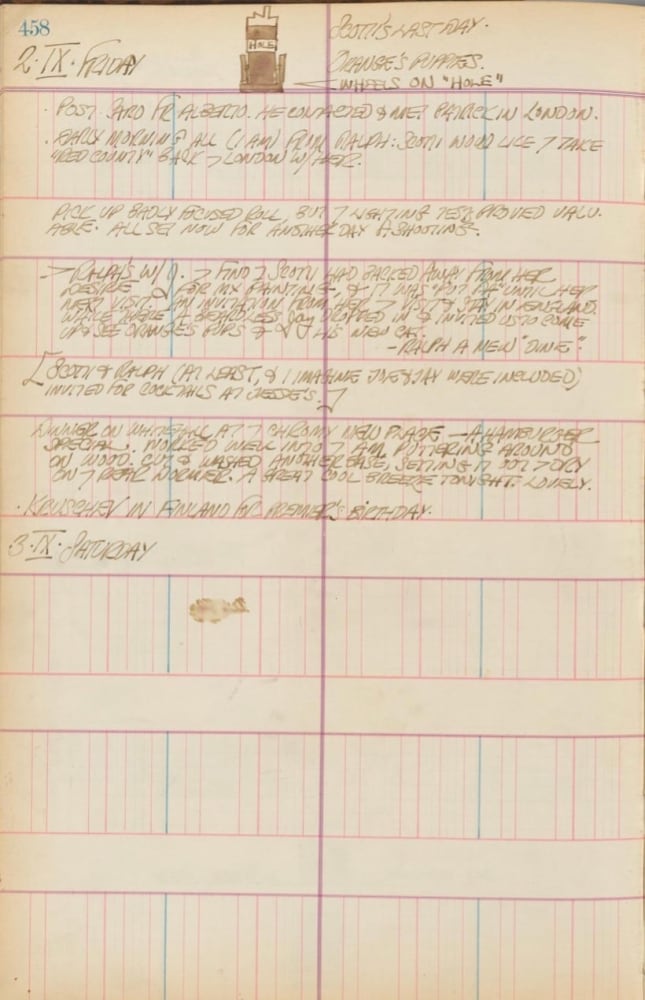 458
SCOTTI'S LAST DAY.
HOLE
2·IX·FRIDAY
ORANGE'S PUPPIES.
WHEELS ON "HOLE"
· POST CARD FR ALBERTO. HE CONTACTED & MET PATRICK IN LONDON.
· EARLY MORNING CALL (1 AM) FROM RALPH: SCOTTI WOULD LIKE 7 TAKE
"RED COUNTY" BACK > LONDON W/ HER.
PICK UP BADLY FOCUSED ROLL, BUT 7 LIGHTING TEST PROVED VALU-
ABLE. ALL SET NOW FOR ANOTHER DAY A SHOOTING.
-> RALPH'S W/ J. > FIND SCOTTI HAD BACKED AWAY FROM HER
DESIRE FOR MY PAINTING, & IT WAS "PUT OFF" UNTIL HER
NEXT VISIT. AN INVITATION FROM HER > VISIT & STAY IN ENGLAND.
WHILE THERE A BEARDLESS JAY DROPPED IN & INVITED US TO COME
UP & SEE ORANGE'S PUPS & HIS NEW CAT.
- RALPH A NEW "DINE".
[SCOTTI & RALPH (AT LEAST, & I IMAGINE JOE & JAY WERE INCLUDED)
INVITED FOR COCKTAILS AT JESSE'S.]
DINNER ON WHITEHALL AT 7 CHROMY NEW PLACE — A HAMBURGER
SPECIAL. WORKED WELL INTO 7 AM, PUTTERING AROUND
ON WOOD. CUT & WASHED ANOTHER BASE, SETTING IT OUT > DRY
ON 7 REAR DORMER. A GREAT COOL BREEZE TONIGHT. LOVELY.
· KRUSCHEV IN FINLAND FOR PREMIER'S BIRTHDAY.
3·IX·SATURDAY